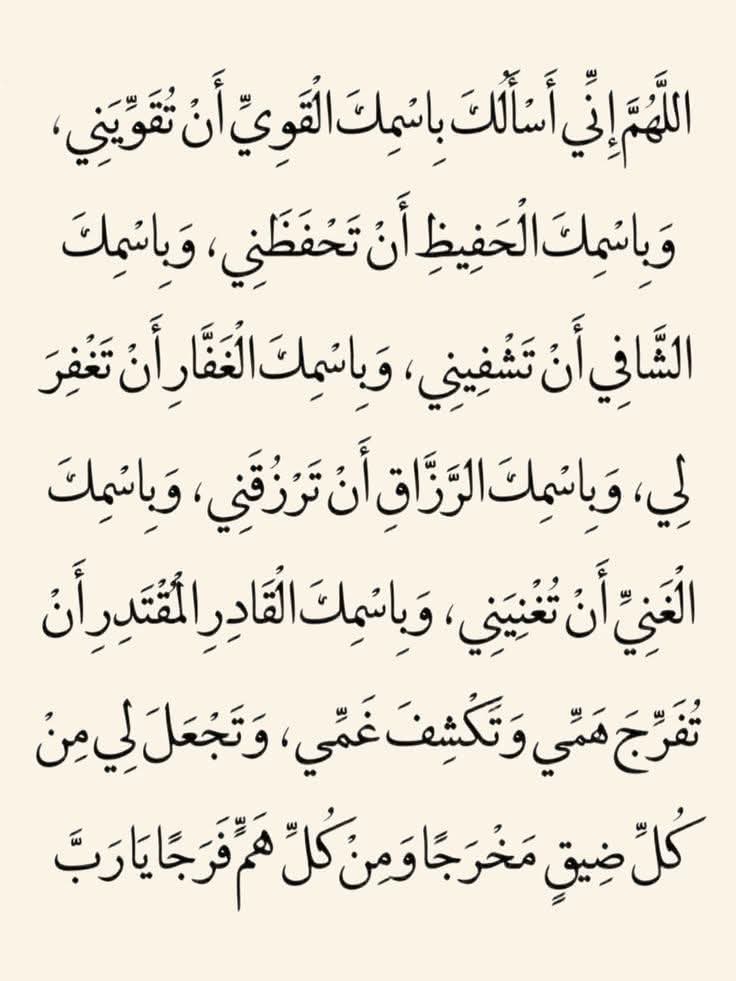 اللَّهُمَّ إِنِّي أَسْأَلُكَ بِاسْمِكَ الْقَوِيِّ أَنْ تُقَوِّيَنِي،
وَبِاسْمِكَ الْحَفِيظِ أَنْ تَحْفَظَنِي، وَبِاسْمِكَ
الشَّافِي أَنْ تَشْفِيَنِي، وَبِاسْمِكَ الْغَفَّارِ أَنْ تَغْفِرَ
لِي، وَبِاسْمِكَ الرَّزَّاقِ أَنْ تَرْزُقَنِي، وَبِاسْمِكَ
الْغَنِيِّ أَنْ تُغْنِيَنِي، وَبِاسْمِكَ الْقَادِرِ الْمُقْتَدِرِ أَنْ
تُفَرِّجَ هَمِّي وَتَكْشِفَ غَمِّي، وَتَجْعَلَ لِي مِنْ
كُلِّ ضِيقٍ مَخْرَجًا وَمِنْ كُلِّ هَمٍّ فَرَجًا يَا رَبَّ